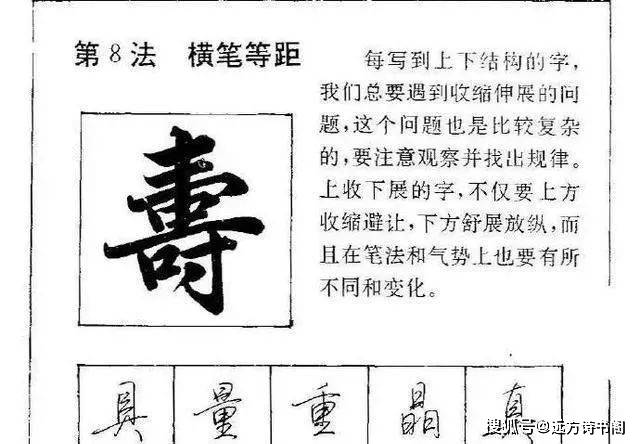 第8法 横笔等距
每写到上下结构的字，
我们总要遇到收缩伸展的问
题，这个问题也是比较复杂
的，要注意观察并找出规律。
上收下展的字，不仅要上方
收缩避让，下方舒展放纵，而
且在笔法和气势上也要有所
不同和变化。
壽
具 量 重 晶 真
搜狐号@远方诗书阁